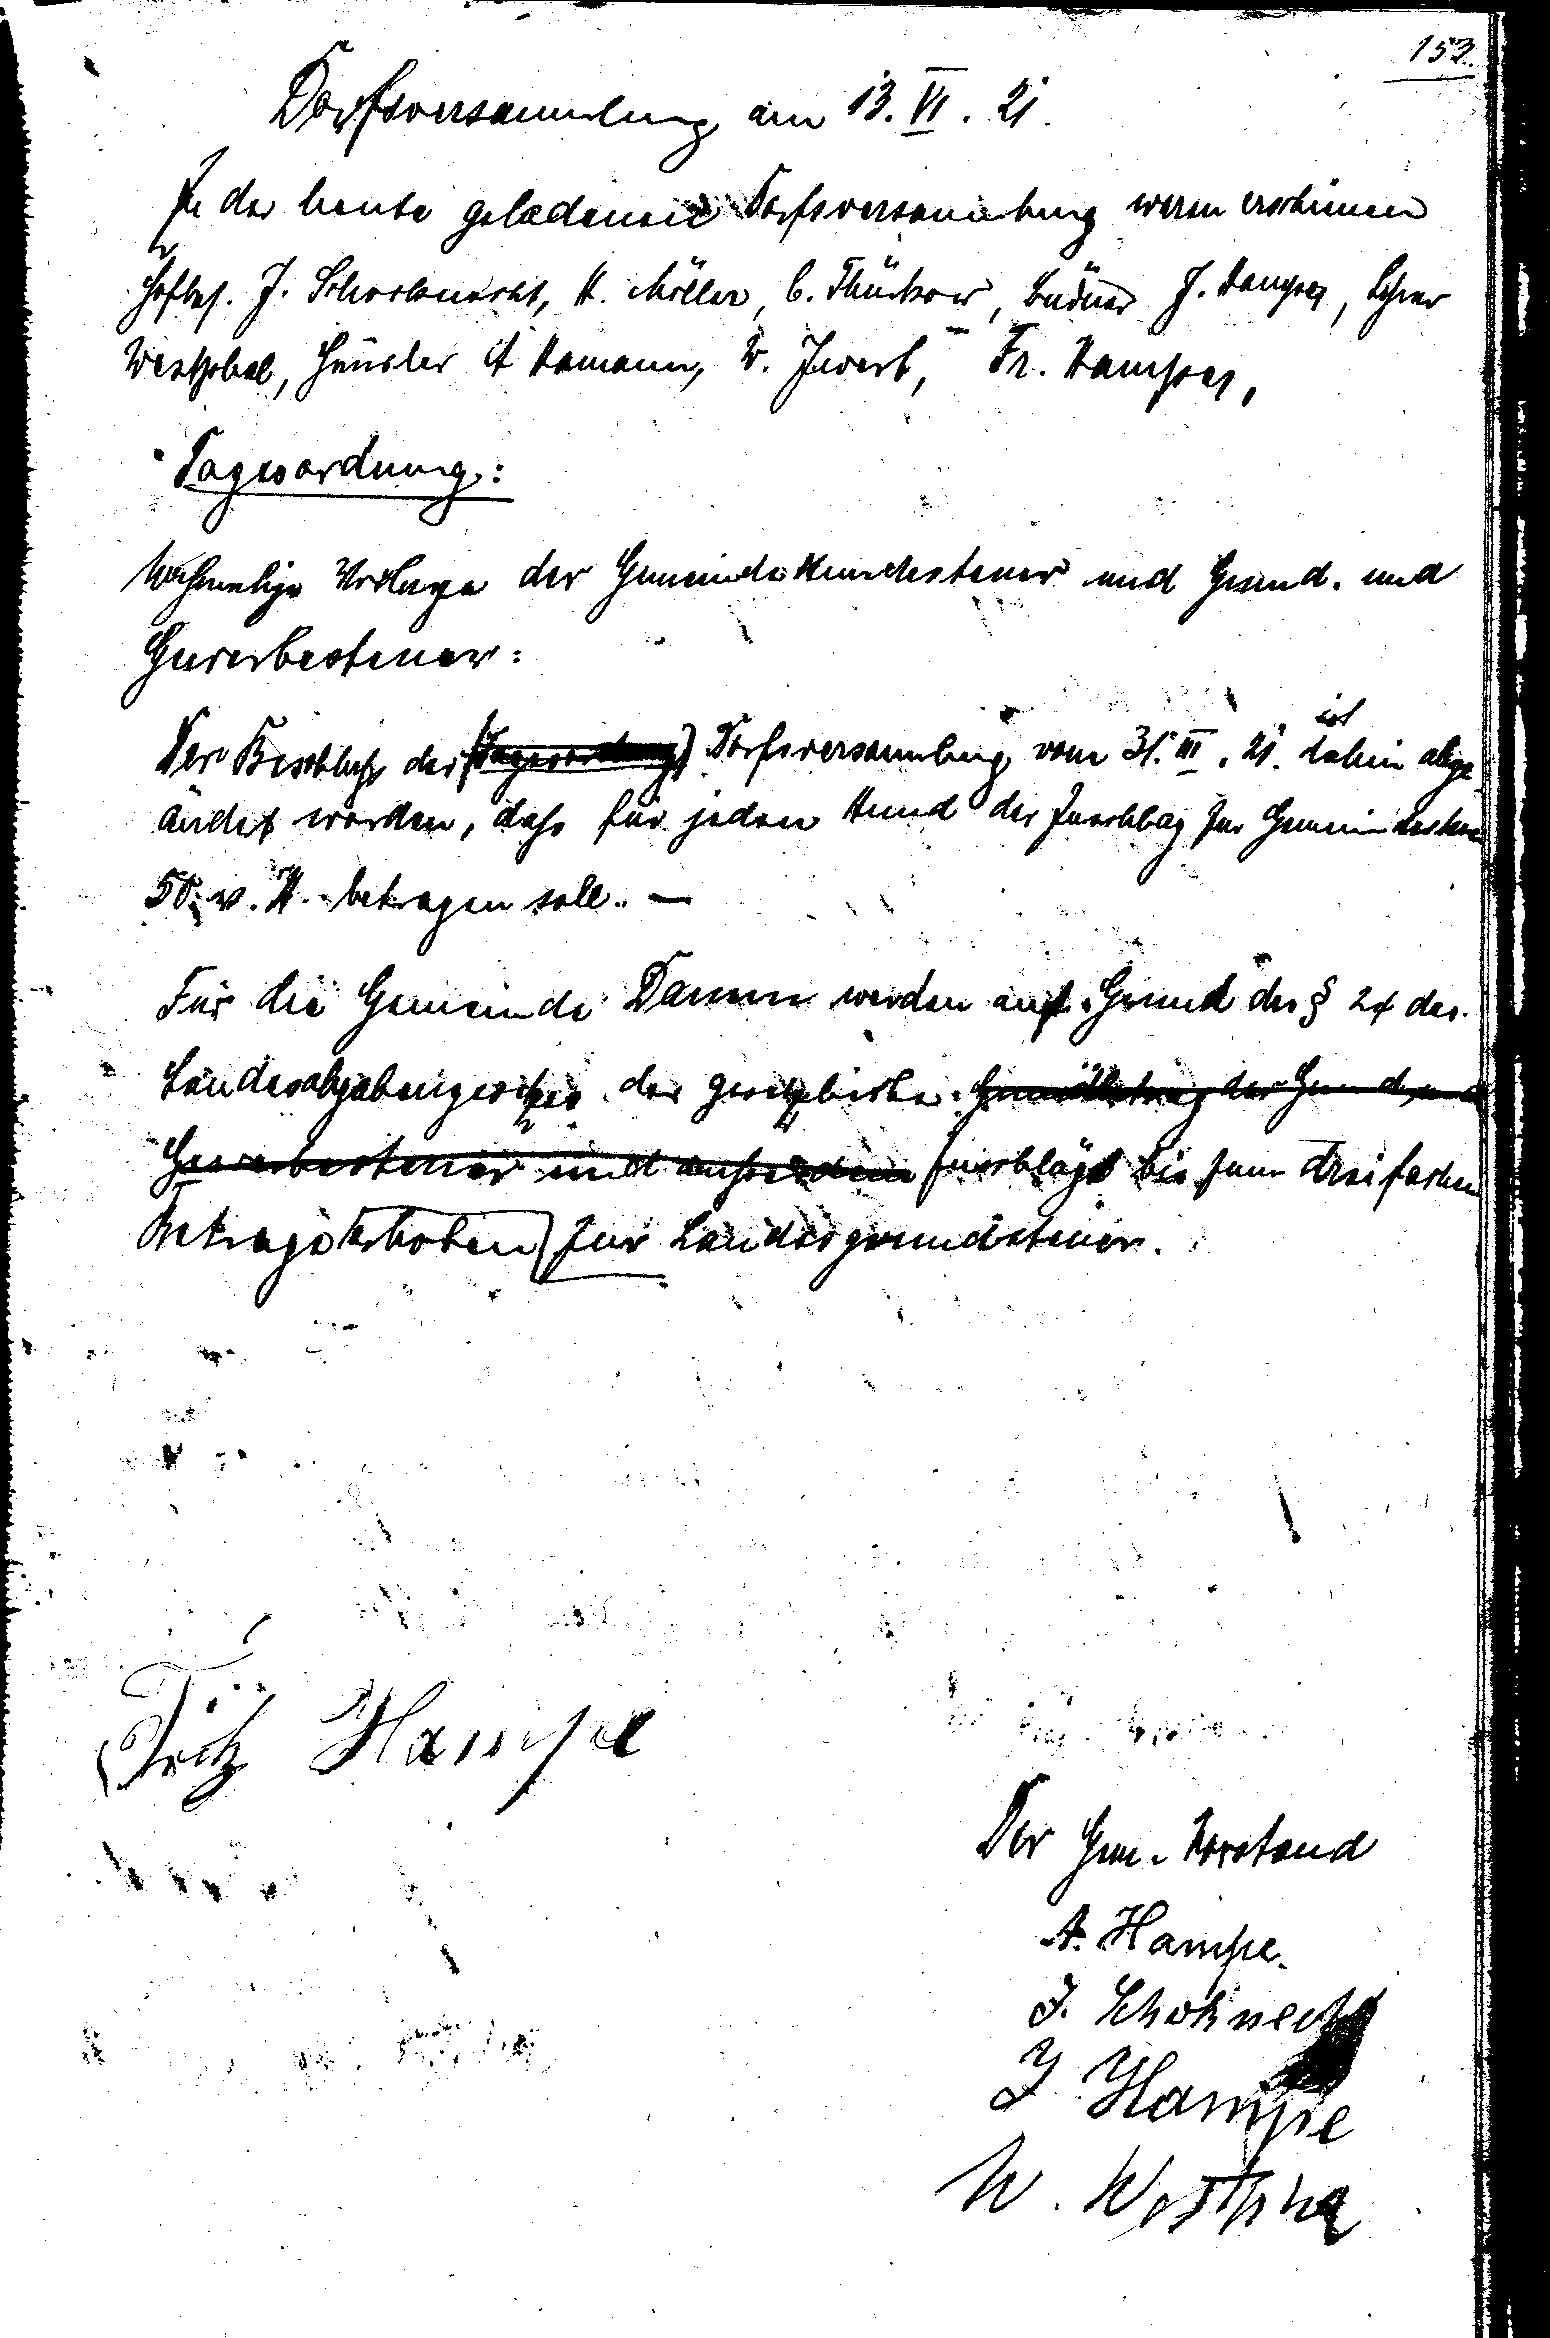 153.
Dorfsversammlung am 13. VI. 21.
In der heute geladenen Dorfsversammlung waren erschienen
Hofbes. J. Schoknecht, H. Möller, C. Thückow, Büdner J. Hampe, Lehrer
Westphal, Häusler A Hamann, W. Fr. Hampe,
Tagesordnung:
Nochmalige Vorlage der Gemeindehundesteuer und Grund- und
Gewerbesteuer:
Der Beschluß der (Tagesordnung) Dorfsversammlung vom 31. III. 21. ist dahin abge-
ändet worden, daß für jeden Hund der Zuschlag zur Gemeindesteuer
50 v. H. betragen soll. —
Für die Gemeinde Damm werden auf Grund des § 24 des
Landesabgabengesetzes der gesetzliche Grundbetrag der Grund und
Gewerbesteuer und außerdem Zuschläge bis zum dreifachen
Betrage erhoben zur Landesgrundsteuer.
Fritz Hampe
Der Gem. Vorstand
A. Hampe.
J. Schoknecht
J Hampe
W. Westphal